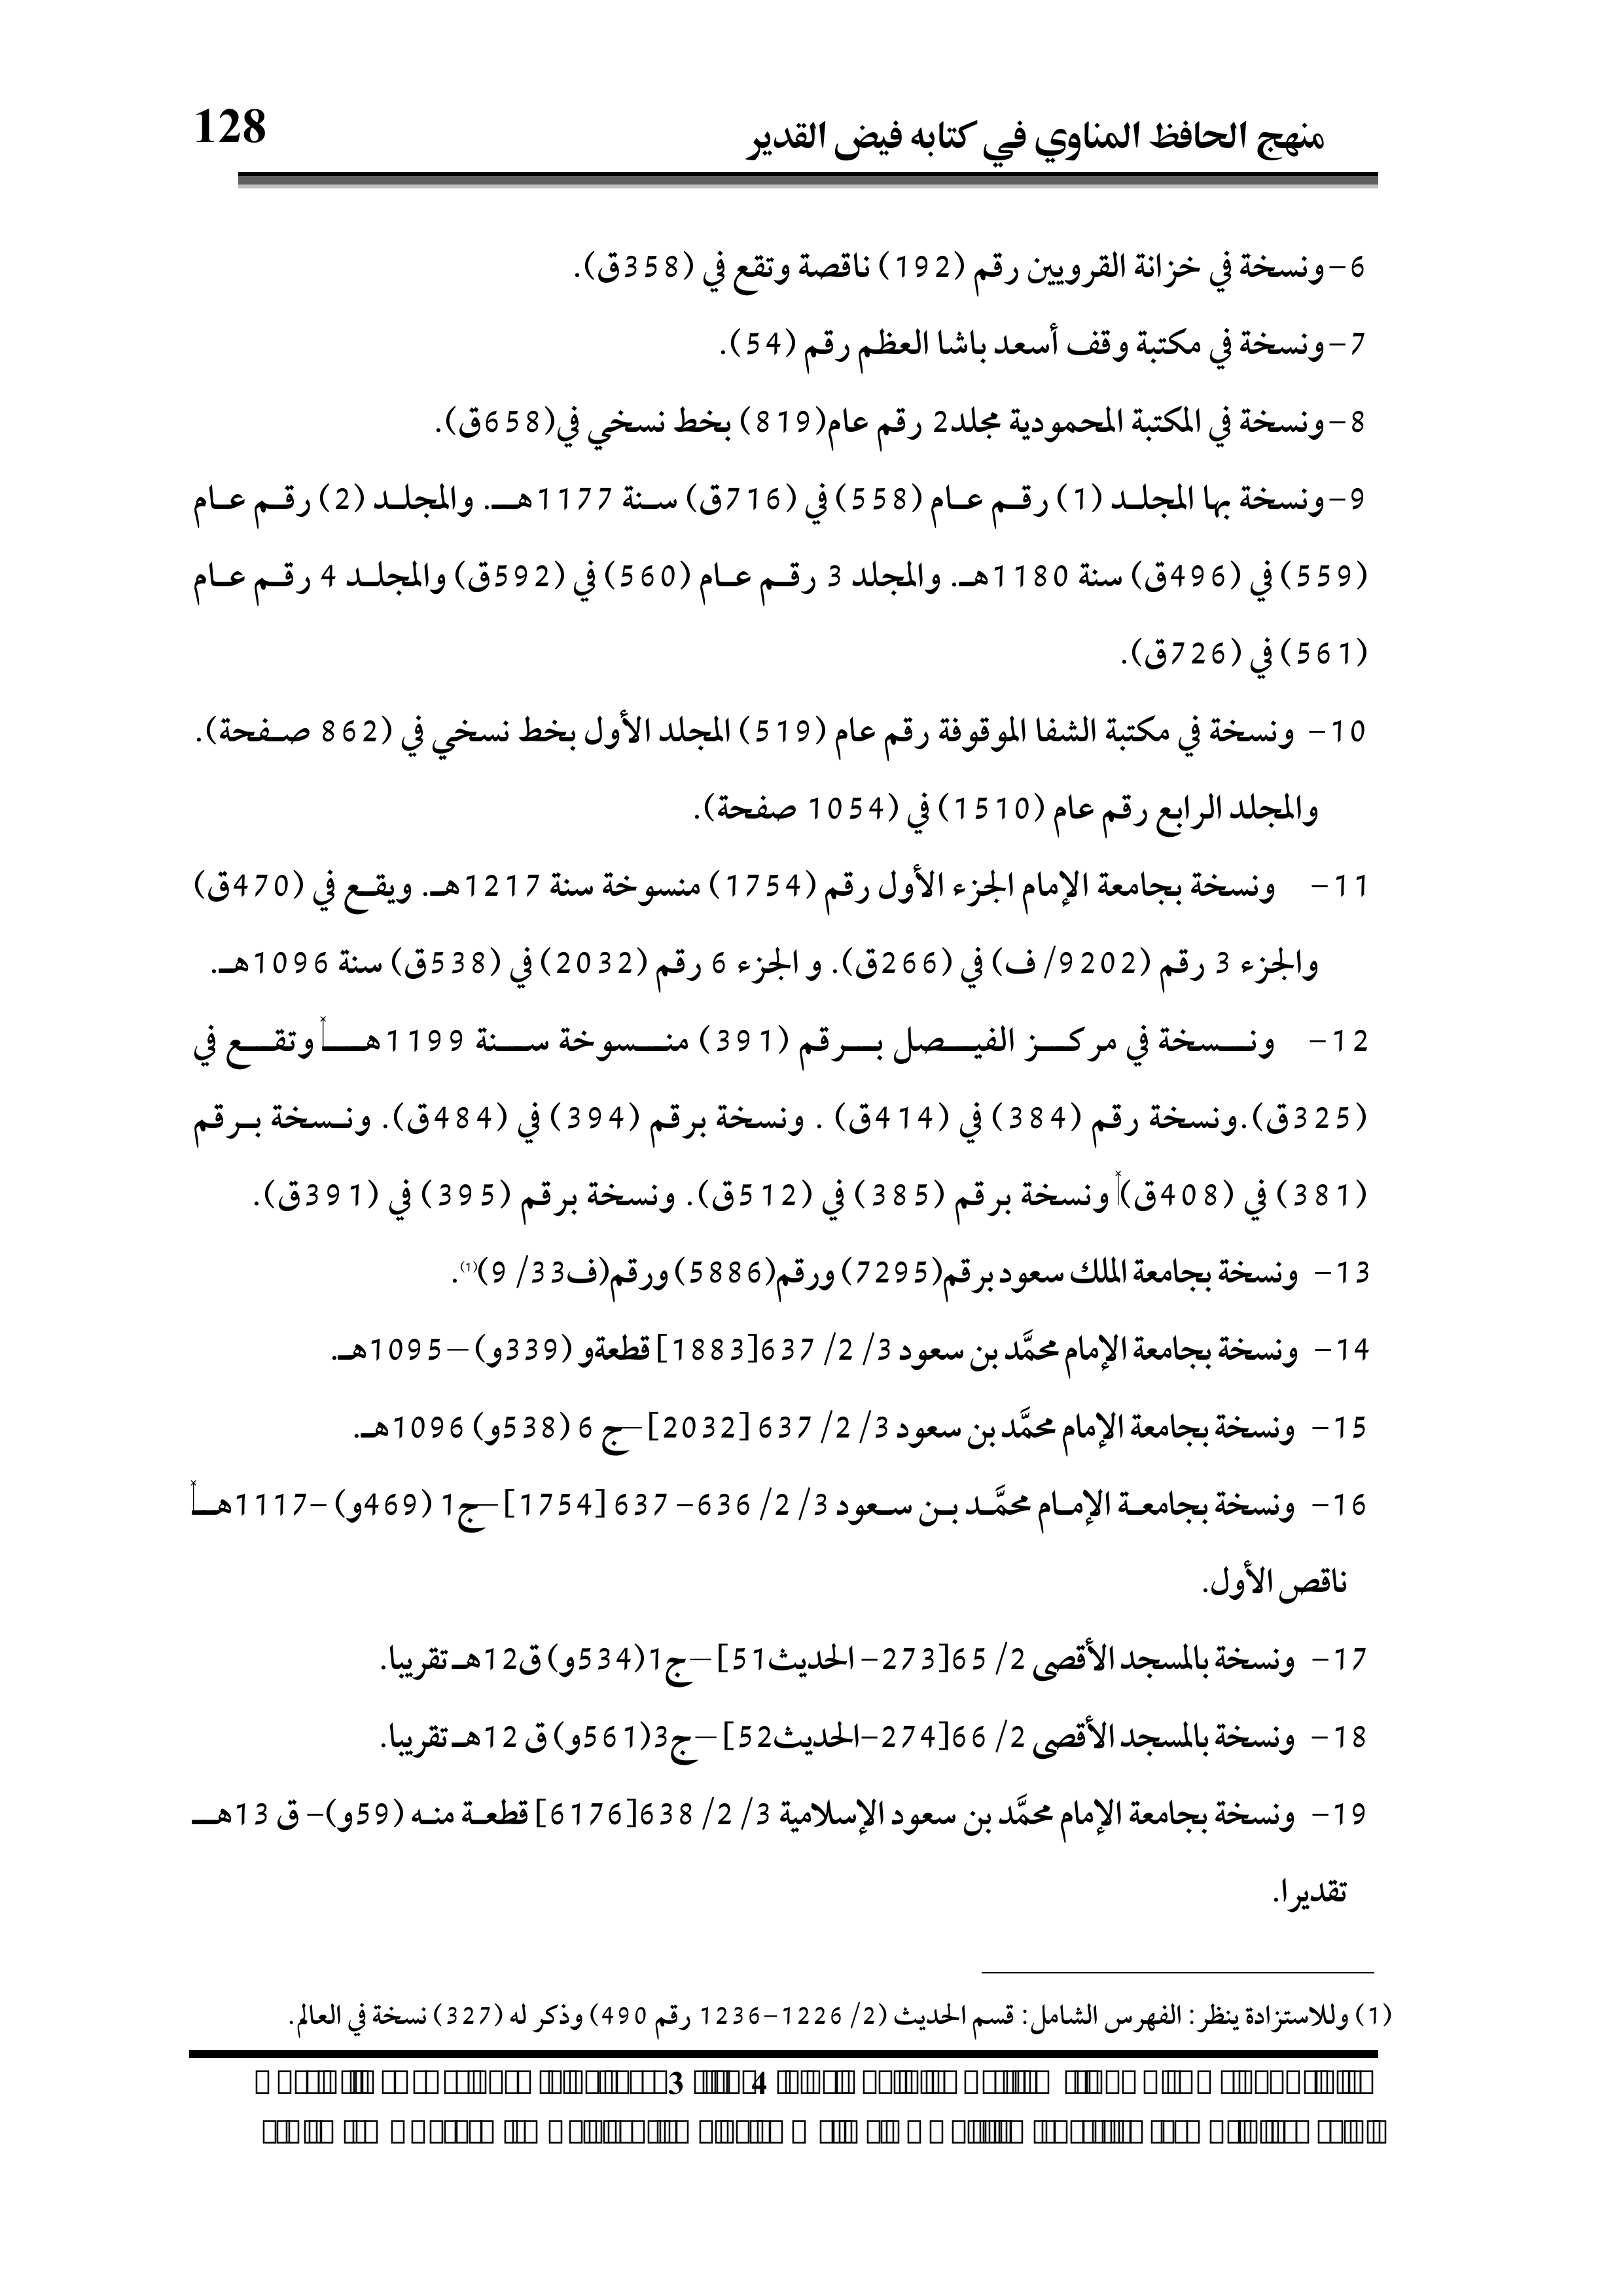 منهج الحافظ المناوي في كتابه فيض القدير
128
6-ونسخة في خزانة القرويين رقم (192) ناقصة وتقع في (358ق).
7-ونسخة في مكتبة وقف أسعد باشا العظم رقم (54).
8-ونسخة في المكتبة المحمودية مجلد2 رقم عام(819) بخط نسخي في(658ق).
9-ونسخة بها المجلد (1) رقم عام (558) في (716ق) سنة 1177هـ. والمجلد (2) رقم عام
(559) في (496ق) سنة 1180هـ. والمجلد 3 رقم عام (560) في (592ق) والمجلد 4 رقم عام
(561) في (726ق).
10- ونسخة في مكتبة الشفا الموقوفة رقم عام (519) المجلد الأول بخط نسخي في (862 صفحة).
والمجلد الرابع رقم عام (1510) في (1054 صفحة).
11- ونسخة بجامعة الإمام الجزء الأول رقم (1754) منسوخة سنة 1217هـ. ويقع في (470ق)
والجزء 3 رقم (9202/ ف) في (266ق). و الجزء 6 رقم (2032) في (538ق) سنة 1096هـ.
12- ونسخة في مركز الفيصل برقم (391) منسوخة سنة 1199هـ وتقع في
(325ق).ونسخة رقم (384) في (414ق) . ونسخة برقم (394) في (484ق). ونسخة برقم
(381) في (408ق) ونسخة برقم (385) في (512ق). ونسخة برقم (395) في (391ق).
13- ونسخة بجامعة الملك سعود برقم(7295) ورقم(5886) ورقم(ف33/ 9)(1).
14- ونسخة بجامعة الإمام محمَّد بن سعود 3/ 2/ 637[1883] قطعةو (339و) –1095هـ.
15- ونسخة بجامعة الإمام محمَّد بن سعود 3/ 2/ 637 [2032]–ج 6 (538و) 1096هـ.
16- ونسخة بجامعة الإمام محمَّد بن سعود 3/ 2/ 636- 637 [1754]–ج1 (469و) -1117هـ
ناقص الأول.
17- ونسخة بالمسجد الأقصى 2/ 65[273- الحديث51]–ج1(534و) ق12هـ تقريبا.
18- ونسخة بالمسجد الأقصى 2/ 66[274-الحديث52]–ج3(561و) ق 12هـ تقريبا.
19- ونسخة بجامعة الإمام محمَّد بن سعود الإسلامية 3/ 2/ 638[6176] قطعة منه (59و)- ق 13هـ
تقديرا.
(1) وللاستزادة ينظر: الفهرس الشامل: قسم الحديث (2/ 1226-1236 رقم 490) وذكر له (327) نسخة في العالم.
4 3